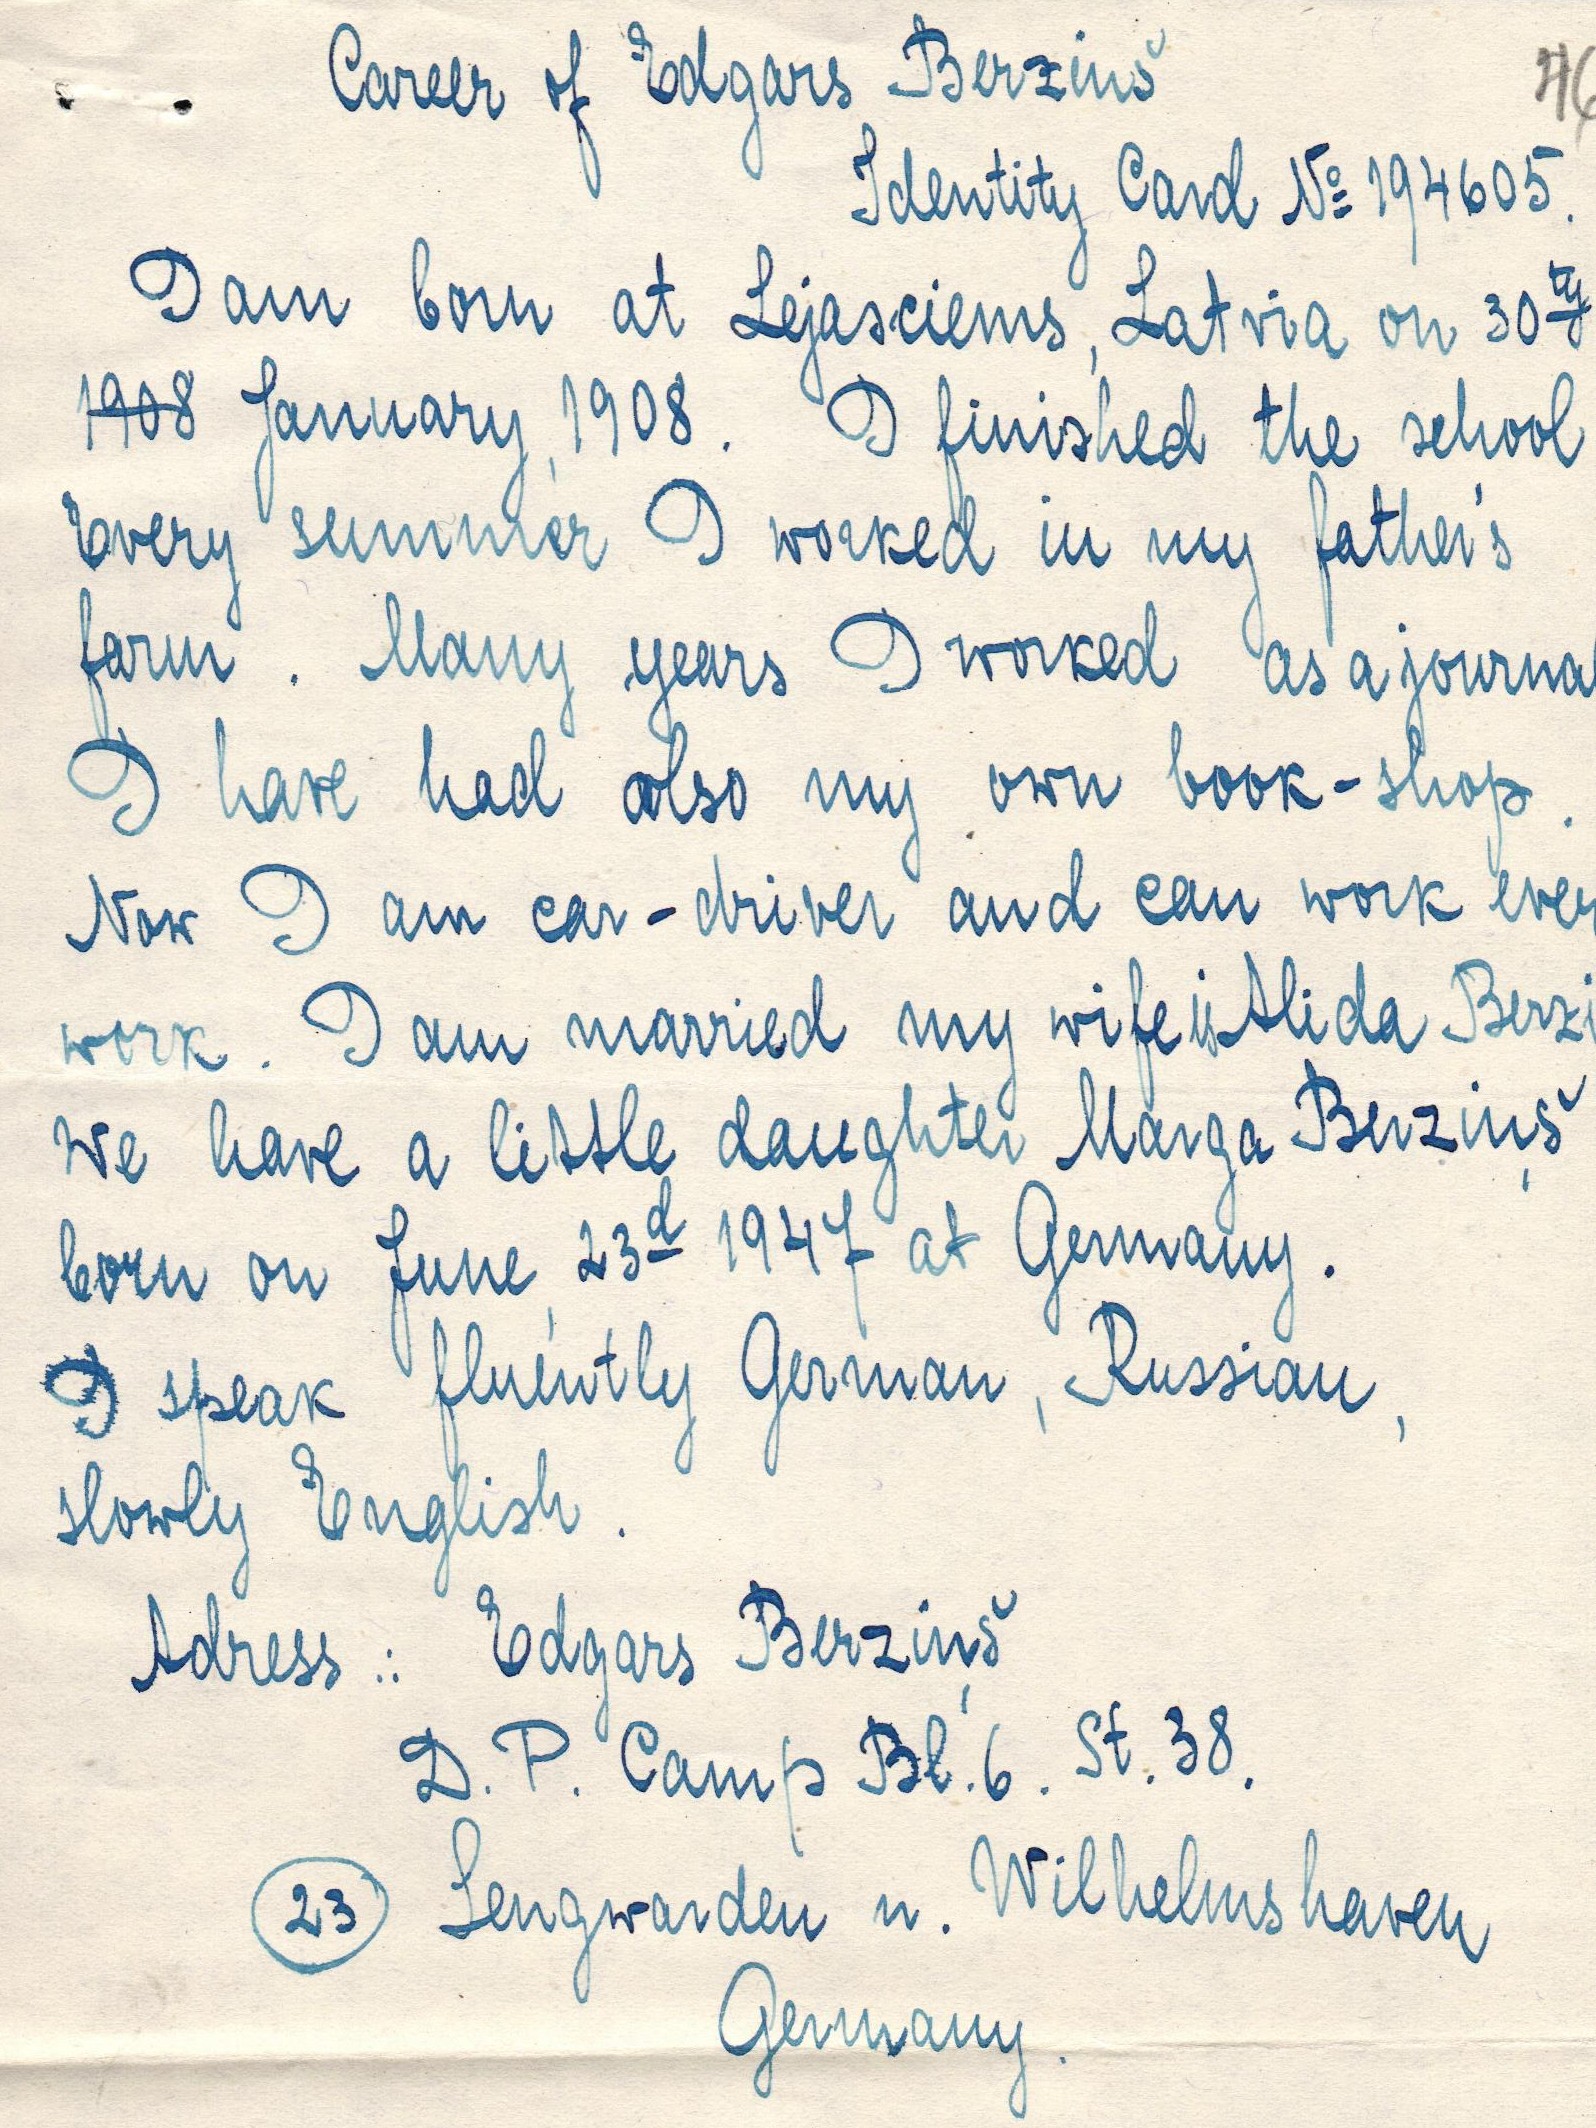 Career of Edgars Berzinš
46
Identity Card № 194605.
I am born at Lejasciems, Latvia on 30ty
1908 January, 1908. I finished the school
Every summer I worked in my father's
farm. Many years I worked as a journal
I have had also my own book-shop.
Now I am car-driver and can work ever
work. I am married my wife is Alida Berzi
We have a little daughter Marga Berziņš
born on June, 23d 1947 at Germany.
I speak fluently German, Russian,
slowly English.
Adress: Edgars Berziņš
D.P. Camp Bl. 6. St. 38.
23 Sengwarden n. Wilhelmshaven
Germany.